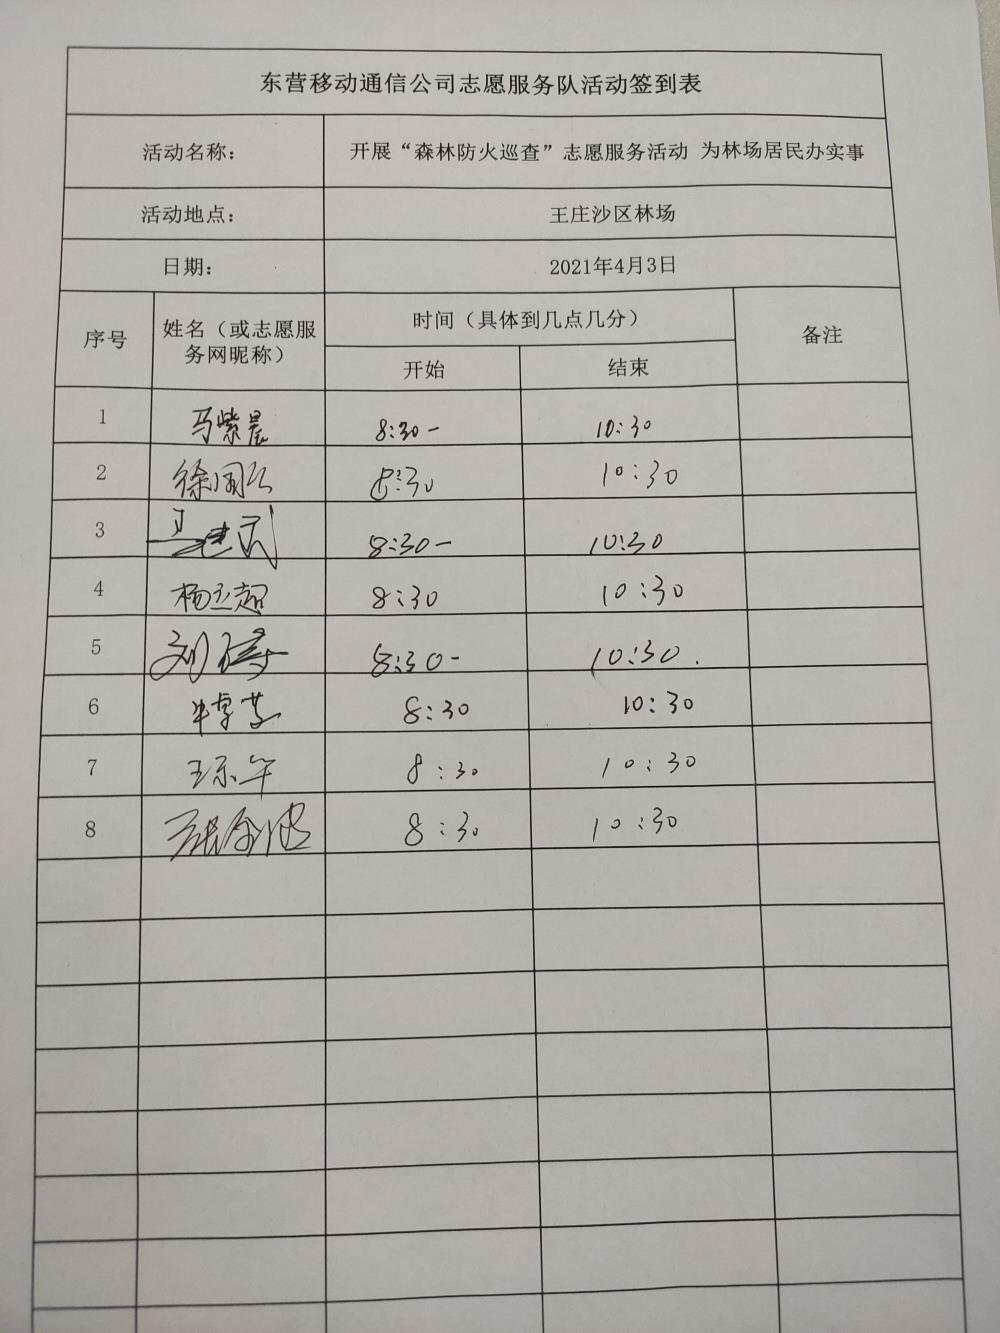 东营移动通信公司志愿服务队活动签到表
活动名称： 开展“森林防火巡查”志愿服务活动 为林场居民办实事
活动地点： 王庄沙区林场
日期： 2021年4月3日
序号 姓名（或志愿服务网昵称） 时间（具体到几点几分） 备注
开始 结束
1 马紫晨 8:30- 10:30
2 8:30 10:30
3 8:30- 10:30
4 8:30 10:30
5 8:30- 10:30.
6 8:30 10:30
7 8:30 10:30
8 8:30 10:30